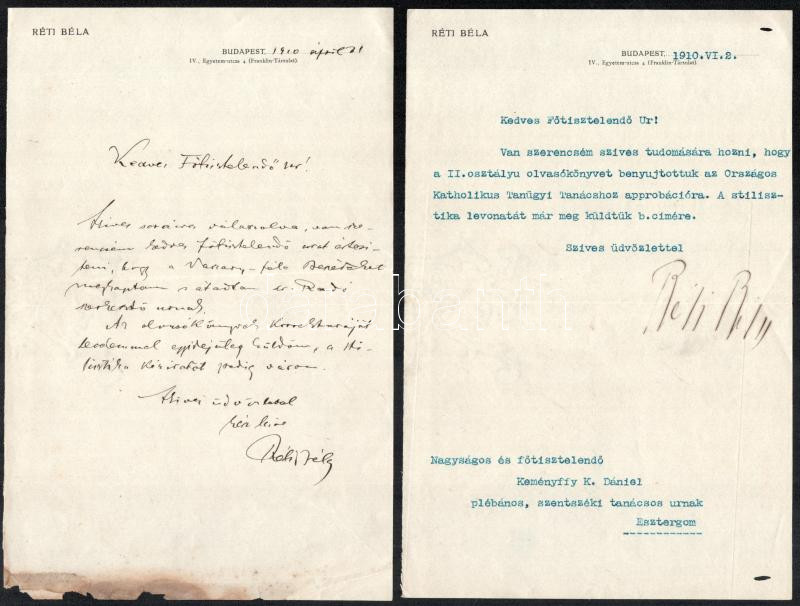 RÉTI BÉLA
BUDAPEST, 1910 april 21
IV., Egyetem-utcza 4 (Franklin-Társulat)
Kedves Főtisztelendő Ur!
Szives soraira válaszolva, van sze-
rencsém kedves főtisztelendő urat értesi-
teni, hogy a
megkaptam s átadtam Dr. Radó
szerkesztő urnak.
Az olvasókönyvek korrekturáját
egyidejüleg küldöm, a sti-
lisztika kéziratát pedig várom.
Szives üdvözlettel
kész hive
Réti Béla
RÉTI BÉLA
BUDAPEST, 1910.VI.2.
IV., Egyetem-utcza 4 (Franklin-Társulat)
Kedves Főtisztelendő Ur!
Van szerencsém szives tudomására hozni, hogy
a II.osztályu olvasókönyvet benyujtottuk az Országos
Katholikus Tanügyi Tanácshoz approbációra. A stilisz-
tika levonatát már meg küldtük b.cimére.
Szives üdvözlettel
Réti Béla
Nagyságos és főtisztelendő
Keményffy K. Dániel
plébános, szentszéki tanácsos urnak
Esztergom